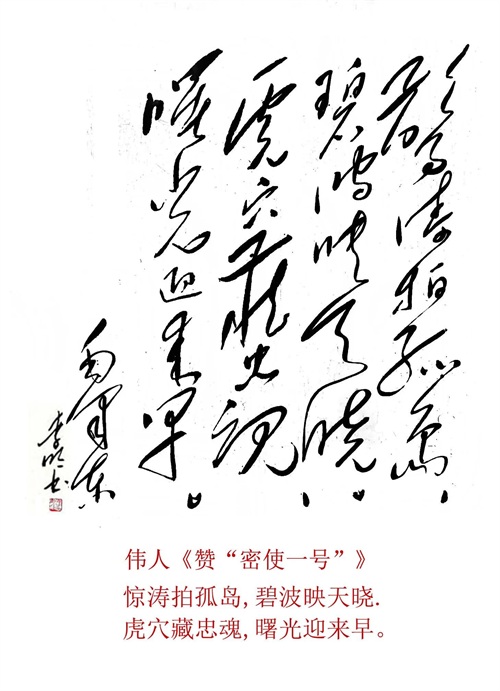 驚涛拍孤島,
碧波映天晓.
虎穴藏忠魂,
曙光迎来早。
毛泽东
伟人《赞“密使一号”》
惊涛拍孤岛, 碧波映天晓.
虎穴藏忠魂, 曙光迎来早。